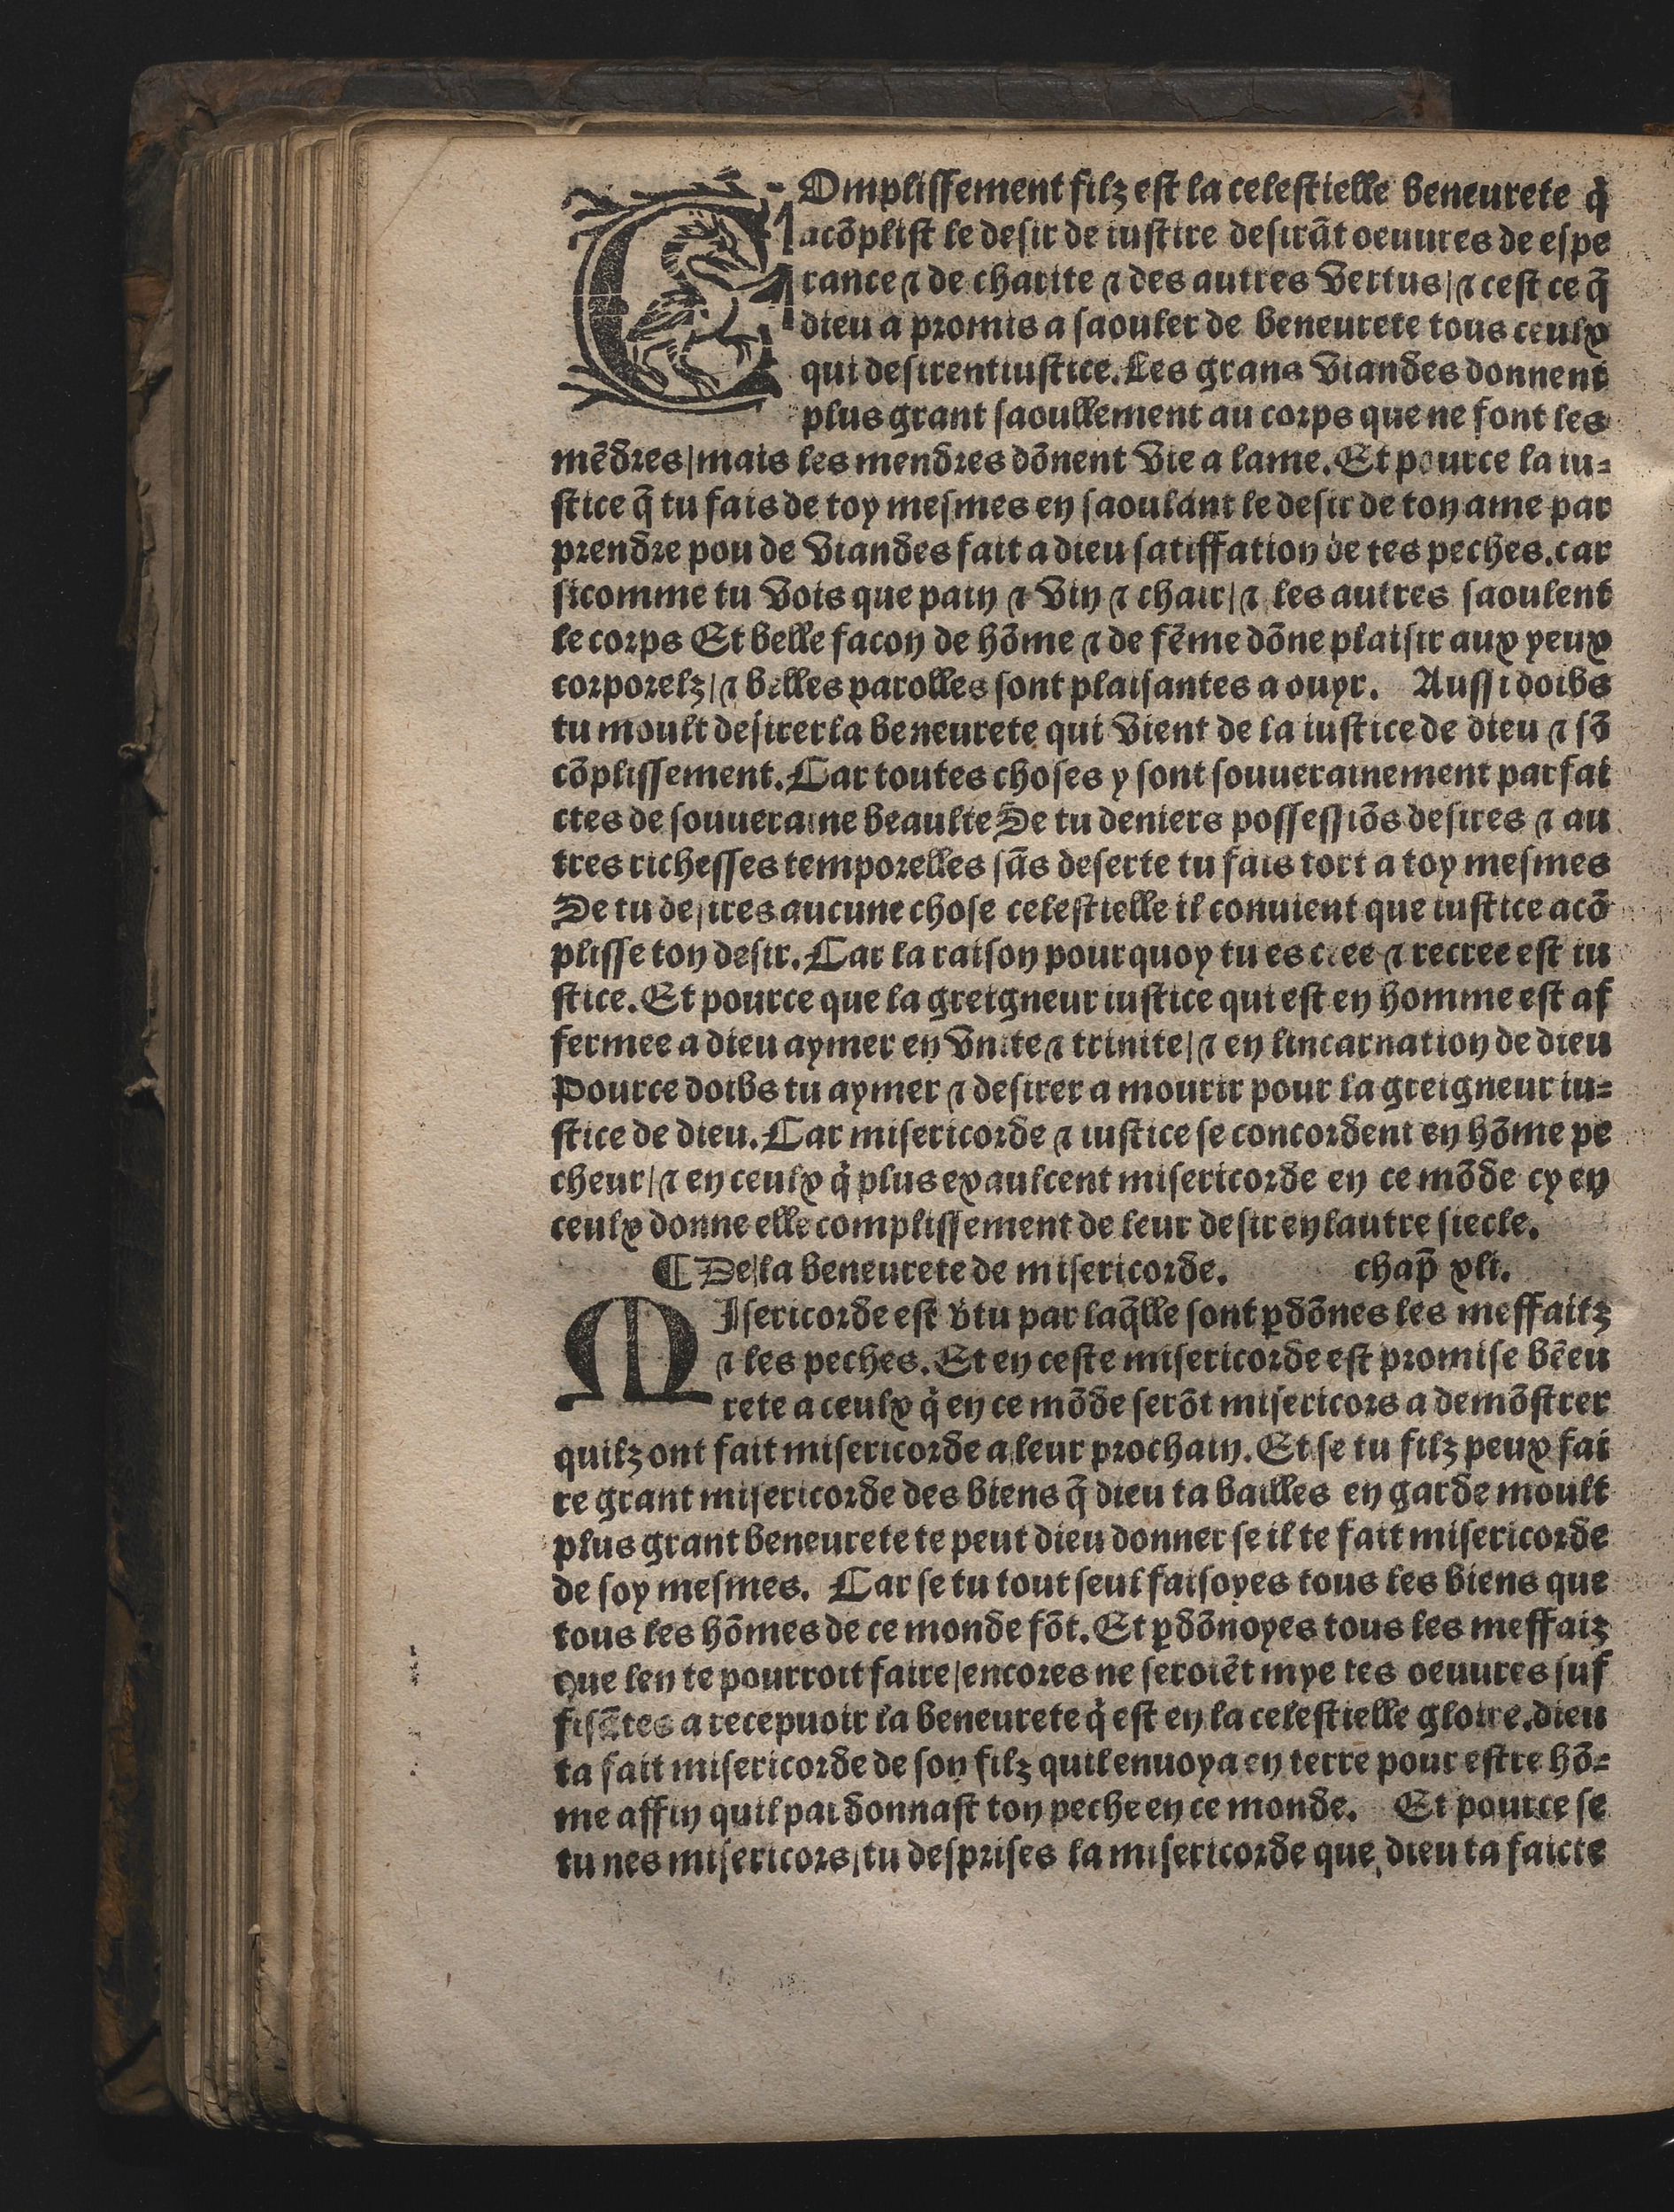 COmplissement filz est la celestielle beneurete q̇
acõplist le desir de iustice desirãt oeuures de espe
rance ⁊ de charite ⁊ des autres vertus/⁊ cest ce q̃
dieu a promis a saouler de beneurete tous ceulx
qui desirent iustice. Les grans viandes donnent
plus grant saoullement au corps que ne font les
mẽdres/mais les mendres dõnent vie a lame. Et pource la iu⸗
stice q̃ tu fais de toy mesmes en saoulant le desir de ton ame par
prendre pou de viandes fait a dieu satiffation de tes peches. car
sicomme tu vois que pain ⁊ vin ⁊ chair/⁊ les autres saoulent
le corps Et belle facon de hõme ⁊ de fẽme dõne plaisir aux yeux
corporelz/⁊ belles parolles sont plaisantes a ouyr. Aussi doibs
tu moult desirer la beneurete qui vient de la iustice de dieu ⁊ sõ
cõplissement. Car toutes choses y sont souuerainement parfai
ctes de souueraine beaulte Se tu deniers possessiõs desires ⁊ au
tres richesses temporelles sãs deserte tu fais tort a toy mesmes
Se tu desires aucune chose celestielle il conuient que iustice acõ
plisse ton desir. Car la raison pour quoy tu es cree ⁊ recree est iu
stice. Et pource que la greigneur iustice qui est en homme est af
fermee a dieu aymer en vnite ⁊ trinite/⁊ en lincarnation de dieu
Pource doibs tu aymer ⁊ desirer a mourir pour la greigneur iu⸗
stice de dieu. Car misericorde ⁊ iustice se concordent en hõme pe
cheur/⁊ en ceulx q̇ plus exaulcent misericorde en ce mõde cy en
ceulx donne elle complissement de leur desir en lautre siecle.
¶ De la beneurete de misericorde. chap̃ xli.
MIsericorde est v̾tu par laq̃lle sont ꝑdõnes les meffaitz
⁊ les peches. Et en ceste misericorde est promise bẽeu
rete a ceulx q̇ en ce mõde serõt misericors a demõstrer
quilz ont fait misericorde a leur prochain. Et se tu filz peux fai
re grant misericorde des biens q̃ dieu ta bailles en garde moult
plus grant beneurete te peut dieu donner se il te fait misericorde
de soy mesmes. Car se tu tout seul faisoyes tous les biens que
tous les hõmes de ce monde fõt. Et ꝑdõnoyes tous les meffaiz
que len te pourroit faire/encores ne seroiẽt mye tes oeuures suf
fisãtes a recepuoir la beneurete q̇ est en la celestielle gloire. dieu
ta fait misericorde de son filz quil enuoya en terre pour estre hõ⸗
me affin quil pardonnast ton peche en ce monde. Et pource se
tu nes misericors/tu desprises la misericorde que dieu ta faicte